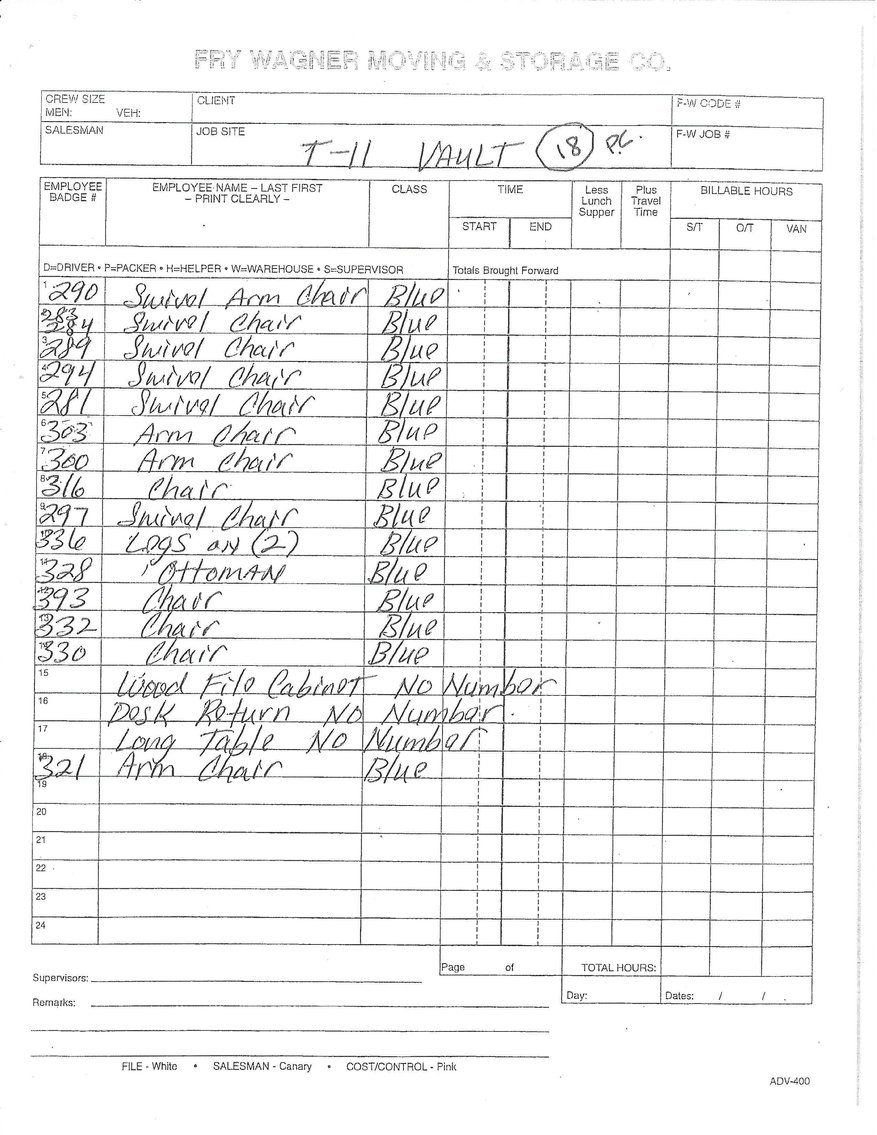 FRY WAGNER MOVING & STORAGE CO.
CREW SIZE
MEN: VEH:
CLIENT
F-W CODE #
SALESMAN
JOB SITE
T-11 VAULT 18 PC.
F-W JOB #
EMPLOYEE BADGE #
EMPLOYEE NAME – LAST FIRST
– PRINT CLEARLY –
CLASS
TIME
START END
Less Lunch Supper
Plus Travel Time
BILLABLE HOURS
S/T O/T VAN
D=DRIVER • P=PACKER • H=HELPER • W=WAREHOUSE • S=SUPERVISOR Totals Brought Forward
1 290 Swivel Arm Chair Blue
283
284 Swivel Chair Blue
3 289 Swivel Chair Blue
4 294 Swivel Chair Blue
5 281 Swivel Chair Blue
6 303 Arm Chair Blue
7 300 Arm Chair Blue
8 316 Chair Blue
9 297 Swivel Chair Blue
10 336 Legs on (2) Blue
11 328 " OttomAN Blue
12 393 Chair Blue
13 332 Chair Blue
14 330 Chair Blue
15 Wood File Cabinet No Number
16 Desk Return No Number
17 Long Table No Number
18 321 Arm Chair Blue
19
20
21
22
23
24
Page of TOTAL HOURS:
Supervisors:
Day: Dates: / /
Remarks:
FILE - White • SALESMAN - Canary • COST/CONTROL - Pink
ADV-400